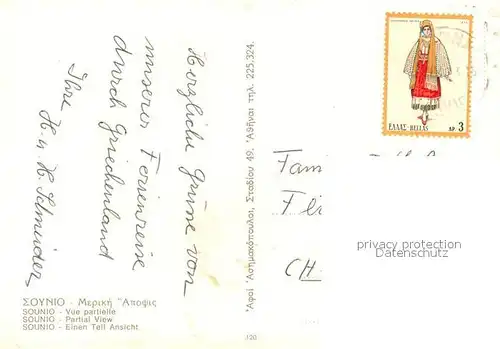 Herzliche Grüsse von
unserer Ferienreise
durch Griechenland
Ihre H. u. H. Schmider
ΣΟΥΝΙΟ - Μερική Ἄποψις
SOUNIO - Vue partielle
SOUNIO - Partial View
SOUNIO - Einen Teil Ansicht
Ἀφοί Ἀσημακόπουλοι, Σταδίου 49, Ἀθῆναι τηλ. 225.324.
120
ΕΛΛΑΣ-HELLAS ΔΡ. 3
Fami
Fl
CH
privacy protection
Datenschutz